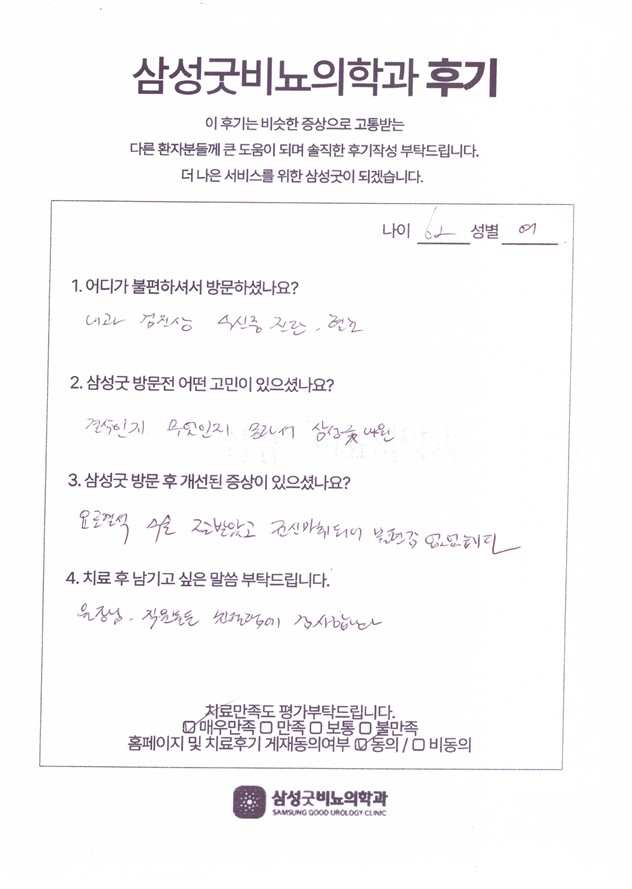 삼성굿비뇨의학과 후기
이 후기는 비슷한 증상으로 고통받는
다른 환자분들께 큰 도움이 되며 솔직한 후기작성 부탁드립니다.
더 나은 서비스를 위한 삼성굿이 되겠습니다.
나이 62 성별 여
1. 어디가 불편하셔서 방문하셨나요?
내과 검진상 수신증 진단, 혈뇨
2. 삼성굿 방문전 어떤 고민이 있으셨나요?
결석인지 무엇인지 모라서 삼성굿 내원
3. 삼성굿 방문 후 개선된 증상이 있으셨나요?
요로결석 수술 잘받았고 전신마취되어 불편감 없었습니다
4. 치료 후 남기고 싶은 말씀 부탁드립니다.
원장님, 직원분들 친절함에 감사합니다
처료만족도 평가부탁드립니다.
☑ 매우만족 ☐ 만족 ☐ 보통 ☐ 불만족
홈페이지 및 치료후기 게재동의여부 ☑ 동의 / ☐ 비동의
삼성굿비뇨의학과
SAMSUNG GOOD UROLOGY CLINIC